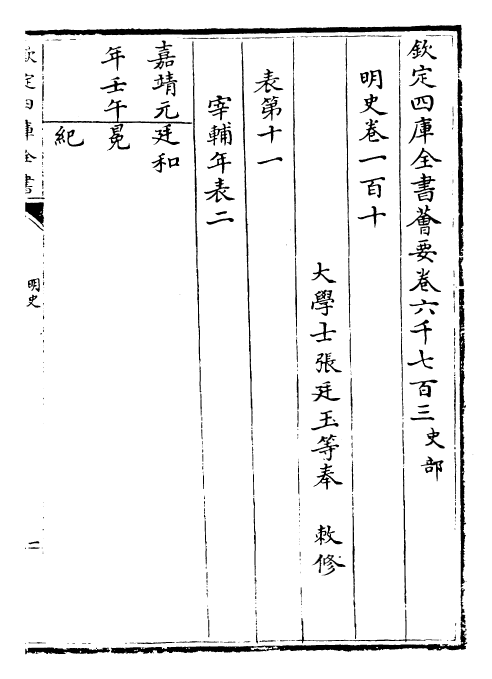 欽定四庫全書薈要卷六千七百三 史部
明史卷一百十
大學士張廷玉等奉 敕修
表第十一
宰輔年表二
嘉靖元
年壬午
廷和
冕
紀
欽定四庫全書
明史
一